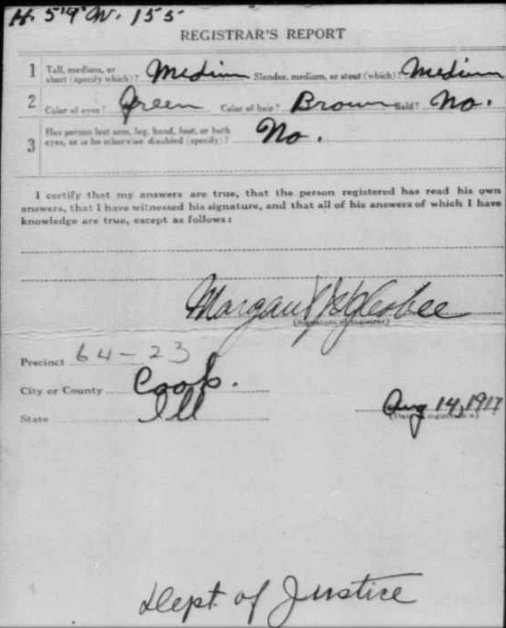 H. 5'9" W. 155
REGISTRAR'S REPORT
1 Tall, medium, or short (specify which)? Medium Slender, medium, or stout (which)? Medium
2 Color of eyes? Green Color of hair? Brown Bald? No.
3 Has person lost arm, leg, hand, foot, or both eyes, or is he otherwise disabled (specify)? No.
I certify that my answers are true, that the person registered has read his own
answers, that I have witnessed his signature, and that all of his answers of which I have
knowledge are true, except as follows:
(Signature of registrar)
Precinct 64-23
City or County Cook.
State Ill
Aug 14, 1917
Dept of Justice